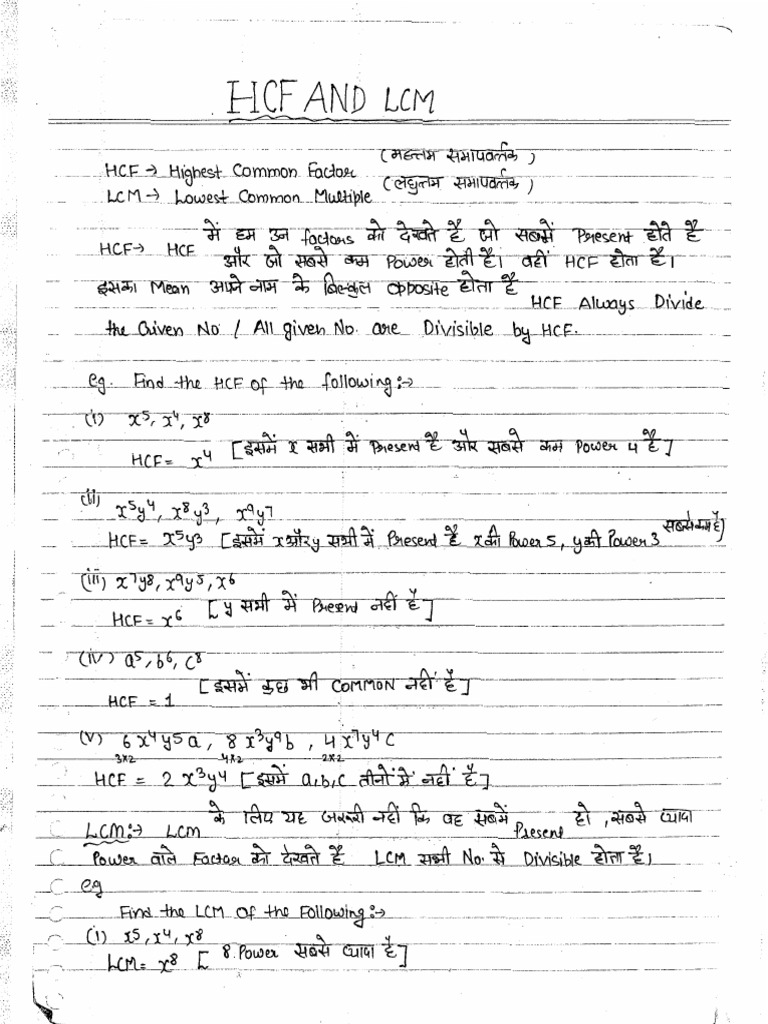 HCF AND LCM
HCF → Highest Common Factor (महत्तम समापवर्तक)
LCM → Lowest Common Multiple (लघुतम समापवर्तक)
HCF → HCF में हम उन factors को देखते है जो सबमें Present होते है
और जो सबसे कम Power होती है। वहीं HCF होता है।
इसका Mean अपने नाम के बिल्कुल opposite होता है
HCF Always Divide
the Given No / All given No. are Divisible by HCF.
eg. Find the HCF of the following :→
(i) x⁵, x⁴, x⁸
HCF = x⁴ [इसमें x सभी में Present है और सबसे कम Power 4 है]
(ii) x⁵y⁴, x⁸y³, x⁹y⁷
HCF = x⁵y³ [इसमें x और y सभी में Present है x की Power 5, y की Power 3 सबसे कम है]
(iii) x⁷y⁸, x⁹y⁵, x⁶
HCF = x⁶ [y सभी में Present नहीं है]
(iv) a⁵, b⁶, c⁸
HCF = 1 [इसमें कुछ भी COMMON नहीं है]
(v) 6x⁴y⁵a, 8x³y⁹b, 4x⁷y⁴c
3x2 4x2 2x2
HCF = 2x³y⁴ [इसमें a,b,c तीनों में नहीं है]
LCM :→ LCM के लिए यह जरूरी नहीं कि वह सबमें Present हो, सबसे ज्यादा
Power वाले Factor को देखते है LCM सभी No. से Divisible होता है।
eg
Find the LCM of the Following :→
(i) x⁵, x⁴, x⁸
LCM = x⁸ [8 Power सबसे ज्यादा है]